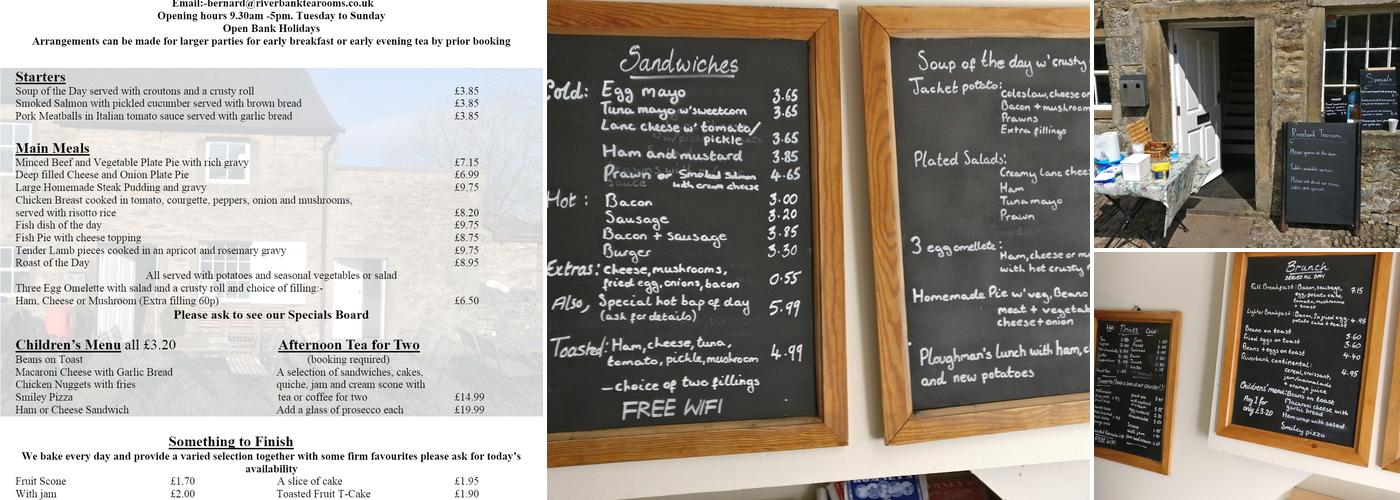 Email:-bernard@riverbanktearooms.co.uk
Opening hours 9.30am -5pm. Tuesday to Sunday
Open Bank Holidays
Arrangements can be made for larger parties for early breakfast or early evening tea by prior booking
Starters
Soup of the Day served with croutons and a crusty roll £3.85
Smoked Salmon with pickled cucumber served with brown bread £3.85
Pork Meatballs in Italian tomato sauce served with garlic bread £3.85
Main Meals
Minced Beef and Vegetable Plate Pie with rich gravy £7.15
Deep filled Cheese and Onion Plate Pie £6.99
Large Homemade Steak Pudding and gravy £9.75
Chicken Breast cooked in tomato, courgette, peppers, onion and mushrooms,
served with risotto rice £8.20
Fish dish of the day £9.75
Fish Pie with cheese topping £8.75
Tender Lamb pieces cooked in an apricot and rosemary gravy £9.75
Roast of the Day £8.95
All served with potatoes and seasonal vegetables or salad
Three Egg Omelette with salad and a crusty roll and choice of filling:-
Ham, Cheese or Mushroom (Extra filling 60p) £6.50
Please ask to see our Specials Board
Children's Menu all £3.20
Beans on Toast
Macaroni Cheese with Garlic Bread
Chicken Nuggets with fries
Smiley Pizza
Ham or Cheese Sandwich
Afternoon Tea for Two
(booking required)
A selection of sandwiches, cakes,
quiche, jam and cream scone with
tea or coffee for two £14.99
Add a glass of prosecco each £19.99
Something to Finish
We bake every day and provide a varied selection together with some firm favourites please ask for today's
availability
Fruit Scone £1.70 A slice of cake £1.95
With jam £2.00 Toasted Fruit T-Cake £1.90
Sandwiches
Cold: Egg mayo 3.65
Tuna mayo w' sweetcorn 3.65
Lanc cheese w' tomato/
pickle 3.65
Ham and mustard 3.85
Prawn or Smoked Salmon 4.65
with cream cheese
Hot: Bacon 3.00
Sausage 3.20
Bacon + Sausage 3.85
Burger 3.30
Extras: cheese, mushrooms,
fried egg, onions, bacon 0.55
Also, Special hot bap of day 5.99
(ask for details)
Toasted: Ham, cheese, tuna,
tomato, pickle, mushroom 4.99
—choice of two fillings
FREE WIFI
Soup of the day w' crusty
Jacket potato:
Coleslaw, cheese or
Bacon + mushroom
Prawns
Extra fillings
Plated Salads:
Creamy lanc chees
Ham
Tuna mayo
Prawn
3 egg omellete:
Ham, cheese or m
with hot crusty
Homemade Pie w' veg, Beans
meat + vegetab
cheese + onion
Ploughman's lunch with ham, c
and new potatoes
Specials
Riverbank Tearooms
Please queue at the door
Tables available
Brunch
SERVED ALL DAY
Full Breakfast: Bacon, sausage, 7.15
egg, potato cake,
tomato, mushrooms
+ toast
Lighter Breakfast: Bacon, 2x fried egg 4.95
potato cake + toast
Beans on toast 3.60
fried eggs on toast 3.60
Beans + eggs on toast 4.40
Riverbank continental:
cereal, croissant, 4.95
jam/marmalade
+ orange juice
Childrens' menu: Beans on toast
Any 1 for Macaroni cheese with
only £3.20 garlic bread
Ham wrap with salad
Smiley pizza
Hot Drinks Cold:
FREE WIFI